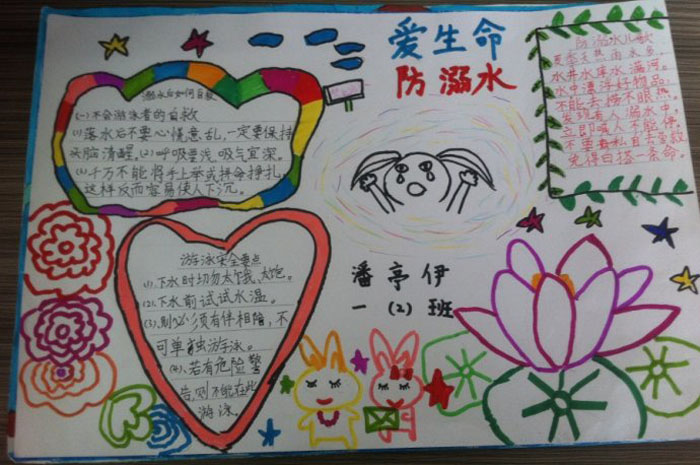 爱生命
防溺水
溺水后如何自救
(一)不会游泳者的自救
(1)落水后不要心慌意乱,一定要保持
头脑清醒。(2)呼吸要浅,吸气宜深。
千万不能将手上举或拼命挣扎,
这样反而容易使人下沉。
防溺水儿歌
水井水库水满河。
水中漂浮好物品,
不能去捞不眼热
发现有人溺水中。
立即喊人不能停,
免得白搭一条命。
潘亭伊
一(2)班
游泳安全要点
(1)、下水时切勿太饿、太饱。
(2)、下水前试试水温。
须有伴相陪,不
可单独游泳。
(4)、若有危险警
告,则不能在此
游泳。